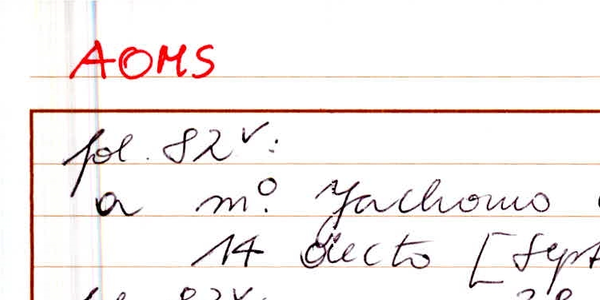 AOMS
fol. 82v:
a mº. Jachomo
14 decto [Sept